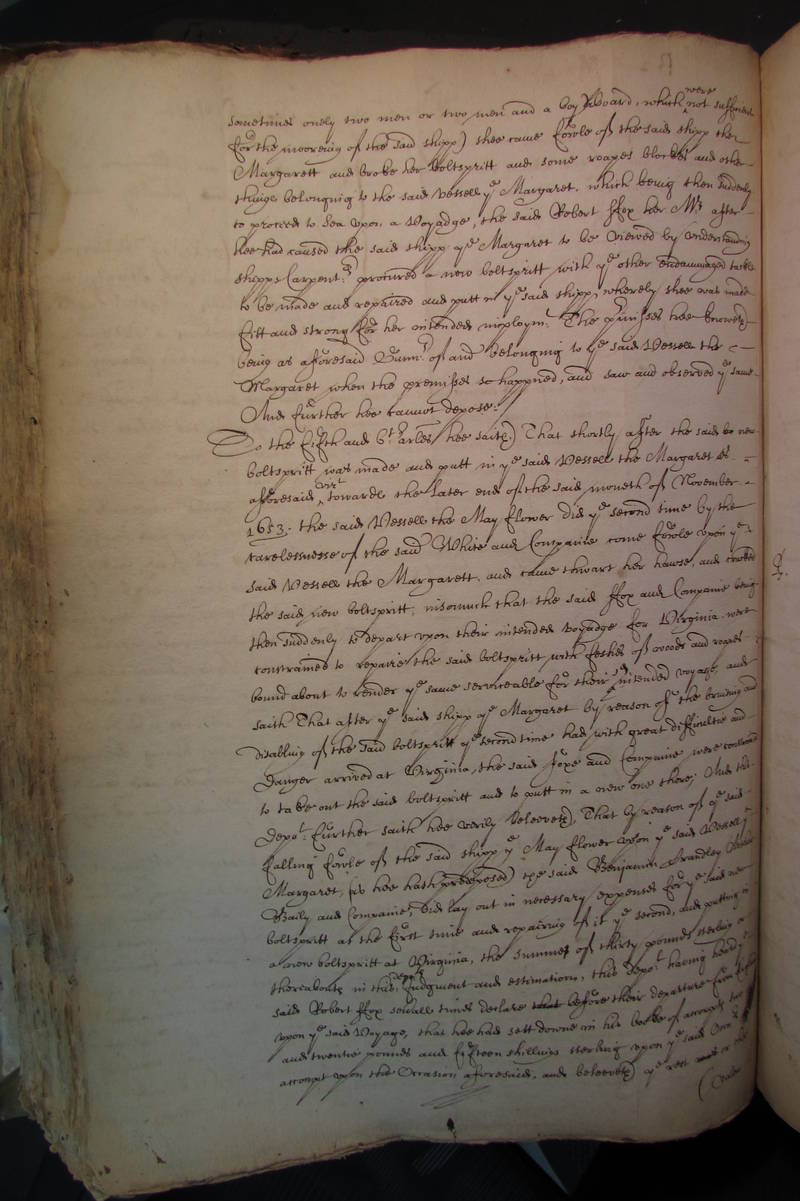 sometimes onely two men or two men and a boy aboard, which were not sufficient
for the mooreing of the said shipp) shee came fowle of the said shipp the
Margarett and broke her boltspritt and some roapes blockes and other
things belonging to the said vessell ye Margaret. which being then suddenly
to proceed to Sea upon a Voyadge, the said Robert ffox her Mr after
hee had caused the said shipp ye Margaret to be viewed by understanding
shipps Carpentrs procured a new boltspritt with ye other endammaged tackle
to be made and repaired and putt in ye said shipp, whereby shee was made
fitt and strong for her intended imploymt. The premisses hee knoweth
being as aforesaid Gunnr of and belonging to ye said Vessell the
Margaret when the premisses so happned, and saw and observed ye same.
And further hee cannot depose./
To the fifth and 6t arles hee saith) That shortly after the said new
boltspritt was made and putt in ye said Vessell the Margaret as
aforesaid, vizt towards the later end of the said moneth of November
1653. the said Vessell the May flower did ye second time by the
carelessnesse of the said White and Companie come fowle upon ye
said Vessell the Margarett. and came thwart her hawse, and cracked
the said new boltspritt; insomuch that the said ffox and Companie being
then suddenly to depart upon their intended voyadge for Virginia were
constrained to repaire the said boltspritt with feshes of wood and roapes
bound about to render ye same serviceable for their sd intended voyage, and
saith That after ye said shipp ye Margaret by reason of the bruising and
disabling of the said boltspritt ye second time had with great difficultie and
danger arrived at Virginia, the said ffoxe and Companie were constrained
to take out the said boltspritt and to putt in a new one there; And this
depot. further saith hee verily beleeveth), That by reason of ye said
falling fowle of the said shipp ye May flower upon ye said Vessell ye
Margaret, (as hee hath predeposed) the said Benjamin Brandley
Baily and Companie, did lay out in necessary expenses for ye said new
boltspritt at the first time and repairing of it ye second, and putting in
a new boltspritt at Virginia, the summe of thirty pounds sterling or
thereabouts in this depots Judgment and estimation, this depot having heard ye
said Robert ffox severall times declare before their departure from
upon ye said Voyage, that hee had sett downe in his booke of accompts
and twentie pounds and fifteen shillings sterling upon ye said
accompt upon the Occasion aforesaid, and beleeveth) ye rest